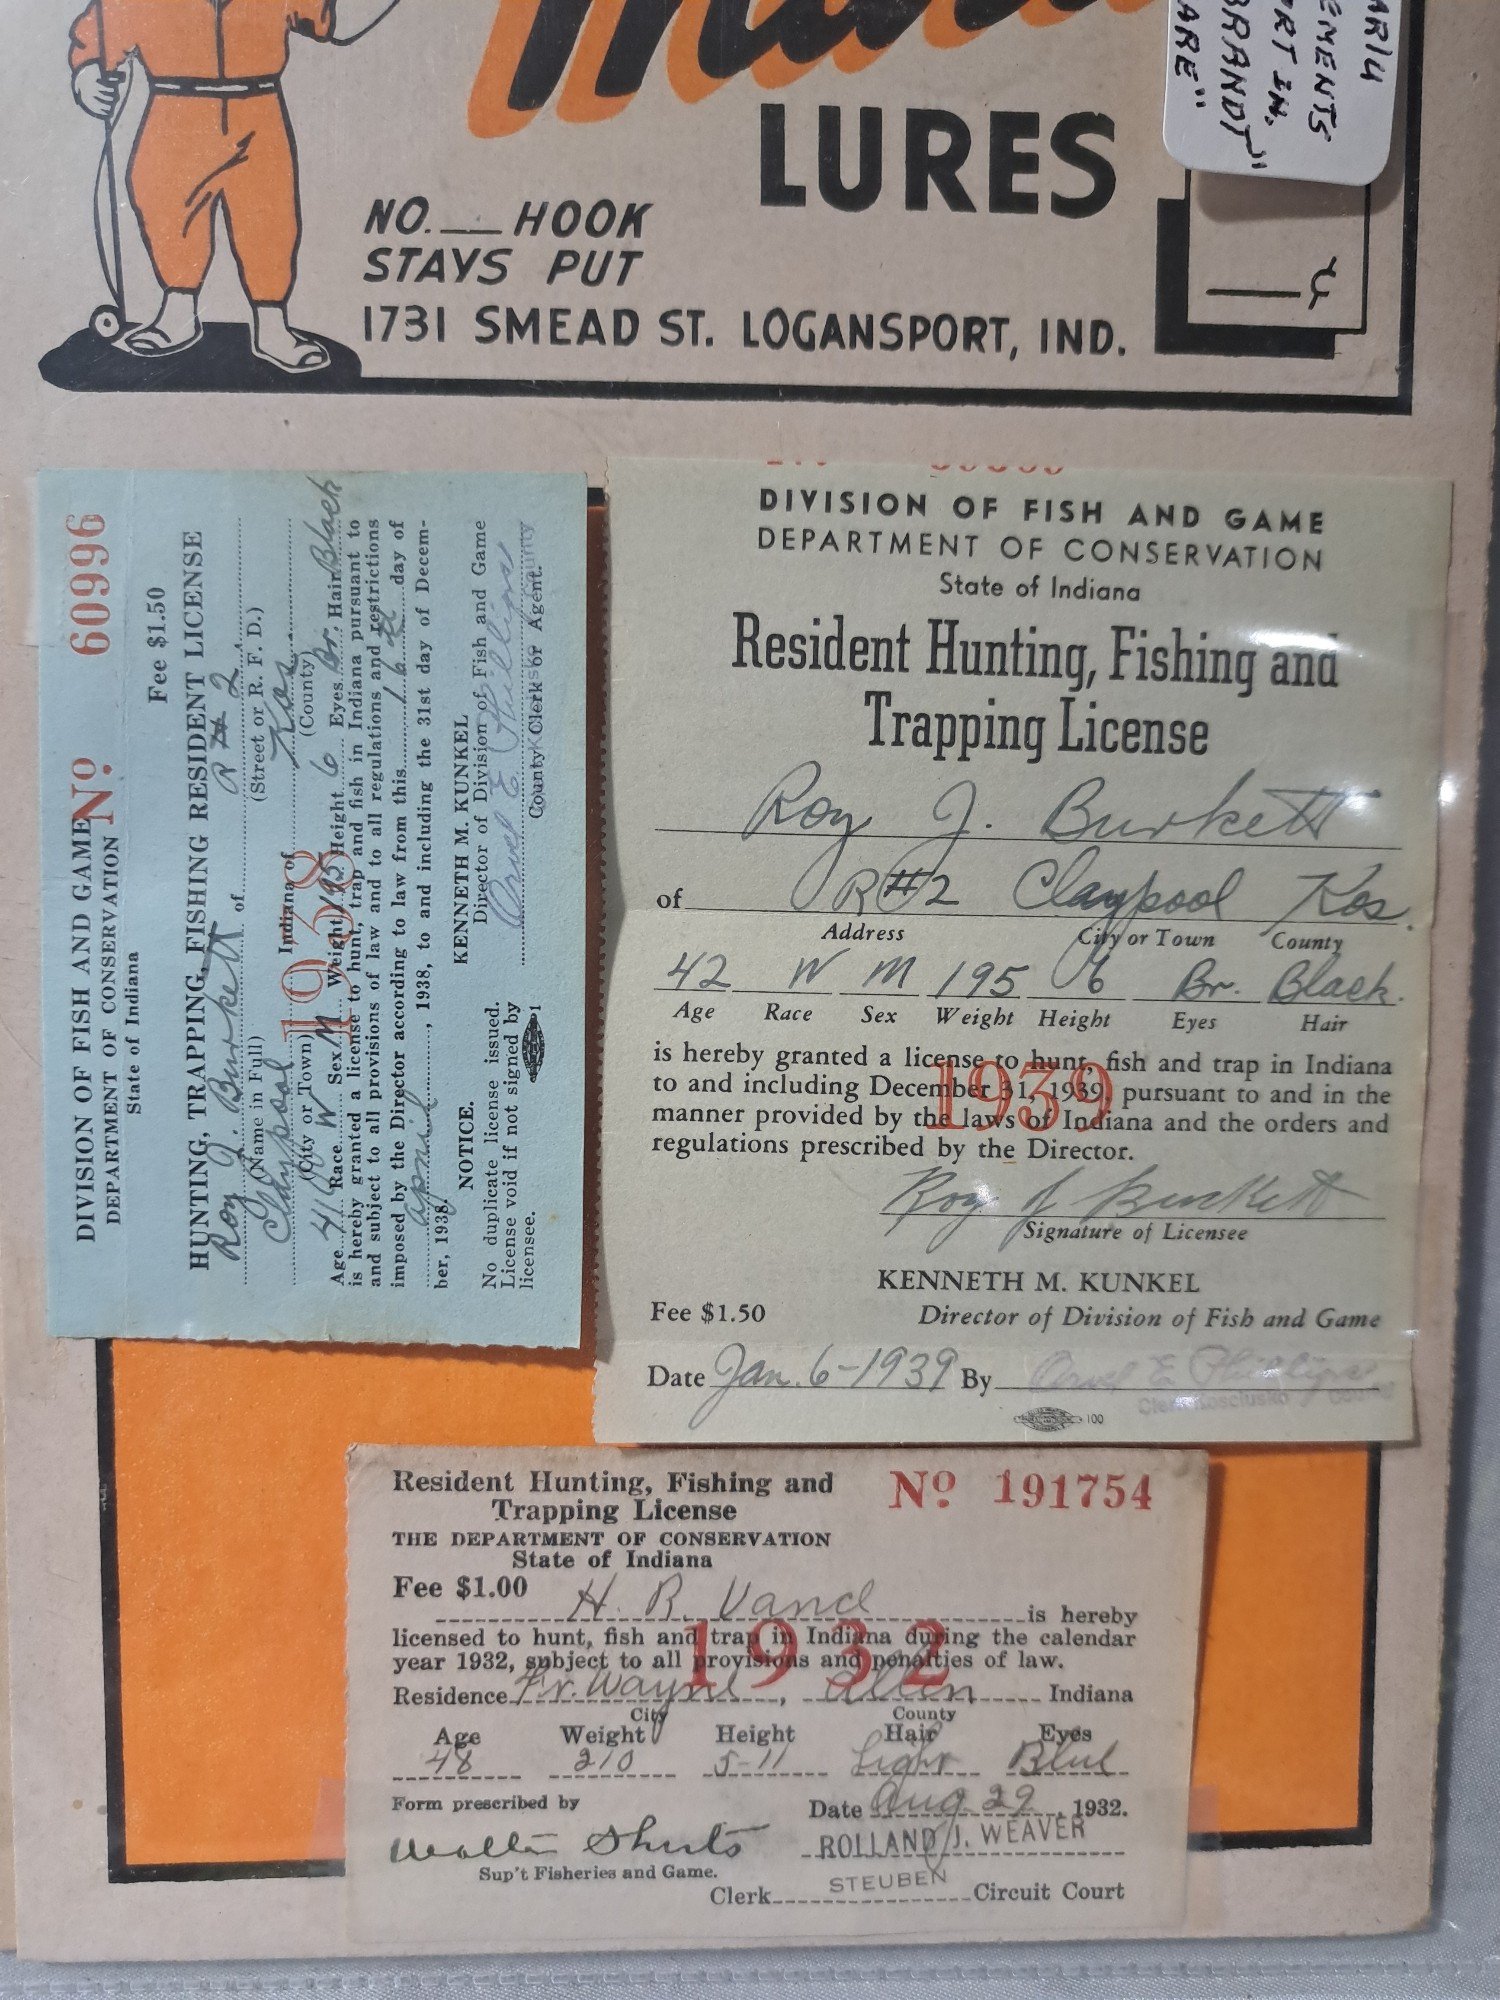 LURES
NO. __ HOOK
STAYS PUT
1731 SMEAD ST. LOGANSPORT, IND.
EMENTS
RT IN.
BRANDT"
ARE"
DIVISION OF FISH AND GAME
DEPARTMENT OF CONSERVATION
State of Indiana
No. 60996
Fee $1.50
HUNTING, TRAPPING, FISHING RESIDENT LICENSE
Roy J. Burkett of R #2
(Name in Full) (Street or R. F. D.)
Claypool Indiana of Kos.
(City or Town) (County)
1938
Age 41 Race W Sex M Weight 195 Height 6 Eyes Br. Hair Black
is hereby granted a license to hunt, trap and fish in Indiana pursuant to
and subject to all provisions of law and to all regulations and restrictions
imposed by the Director according to law from this 16 day of
April, 1938, to and including the 31st day of Decem-
ber, 1938.
KENNETH M. KUNKEL
Director of Division of Fish and Game
NOTICE.
No duplicate license issued.
License void if not signed by
licensee.
Orvel E Phillips
County Clerk or Agent.
1
DIVISION OF FISH AND GAME
DEPARTMENT OF CONSERVATION
State of Indiana
Resident Hunting, Fishing and
Trapping License
Roy J. Burkett
of R#2 Claypool Kos.
Address City or Town County
42 W M 195 6 Br. Black.
Age Race Sex Weight Height Eyes Hair
is hereby granted a license to hunt, fish and trap in Indiana
to and including December 31, 1939, pursuant to and in the
manner provided by the laws of Indiana and the orders and
regulations prescribed by the Director.
1939
Roy J Burkett
Signature of Licensee
KENNETH M. KUNKEL
Fee $1.50 Director of Division of Fish and Game
Date Jan. 6-1939 By Orvel E Phillips
100
Resident Hunting, Fishing and
Trapping License
No. 191754
THE DEPARTMENT OF CONSERVATION
State of Indiana
Fee $1.00
H. R. is hereby
licensed to hunt, fish and trap in Indiana during the calendar
year 1932, subject to all provisions and penalties of law.
1932
Residence Ft. Wayne, Allen Indiana
City County
Age Weight Height Hair Eyes
48 210 5-11 Light Blue
Form prescribed by Date Aug 29, 1932.
Walter Shirts ROLLAND J. WEAVER
Sup't Fisheries and Game.
Clerk STEUBEN Circuit Court